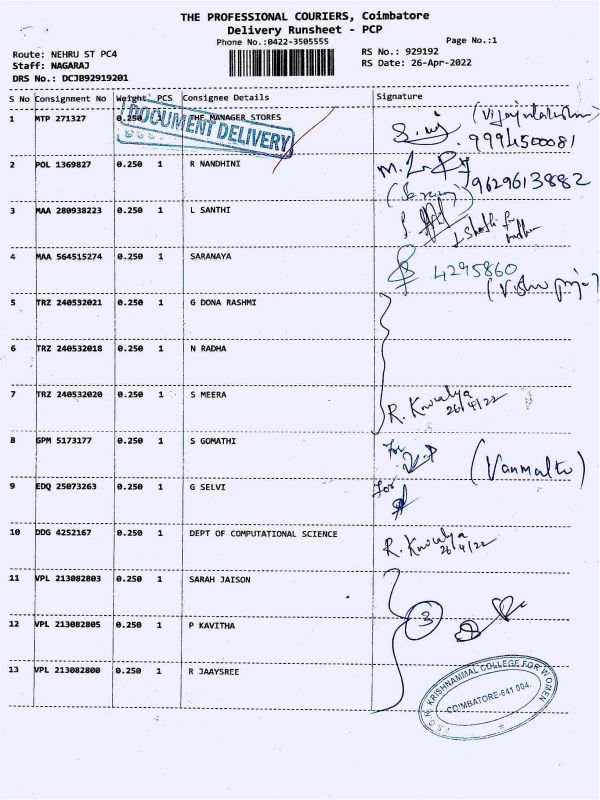 THE PROFESSIONAL COURIERS, Coimbatore
Delivery Runsheet - PCP
Phone No.:0422-3505555
Page No.:1
Route: NEHRU ST PC4
RS No.: 929192
Staff: NAGARAJ
RS Date: 26-Apr-2022
DRS No.: DCJB92919201
S No Consignment No Weight PCS Consignee Details Signature
1 MTP 271327 0.250 1 THE MANAGER STORES
DOCUMENT DELIVERY
9994500081
2 POL 1369827 0.250 1 R NANDHINI
9629613882
3 MAA 280938223 0.250 1 L SANTHI
4 MAA 564515274 0.250 1 SARANAYA
4295860
5 TRZ 240532021 0.250 1 G DONA RASHMI
6 TRZ 240532018 0.250 1 N RADHA
7 TRZ 240532020 0.250 1 S MEERA
26/4/22
8 GPM 5173177 0.250 1 S GOMATHI
For
9 EDQ 25073263 0.250 1 G SELVI
For
10 DDG 4252167 0.250 1 DEPT OF COMPUTATIONAL SCIENCE
26/4/22
11 VPL 213082803 0.250 1 SARAH JAISON
12 VPL 213082805 0.250 1 P KAVITHA
3
13 VPL 213082800 0.250 1 R JAAYSREE
P.S.G.R. KRISHNAMMAL COLLEGE FOR WOMEN
COIMBATORE-641 004.